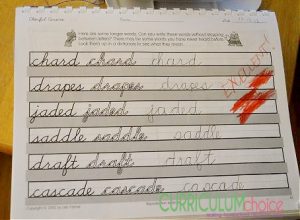 Here are some longer words. Can you write these words without stopping
between letters? There may be some words you have never heard before.
Look them up in a dictionary to see what they mean.
chard chard chard
drapes drapes drapes
jaded jaded jaded
saddle saddle saddle
draft draft draft
cascade cascade cascade
EXCELLENT
CURRICULUM choice